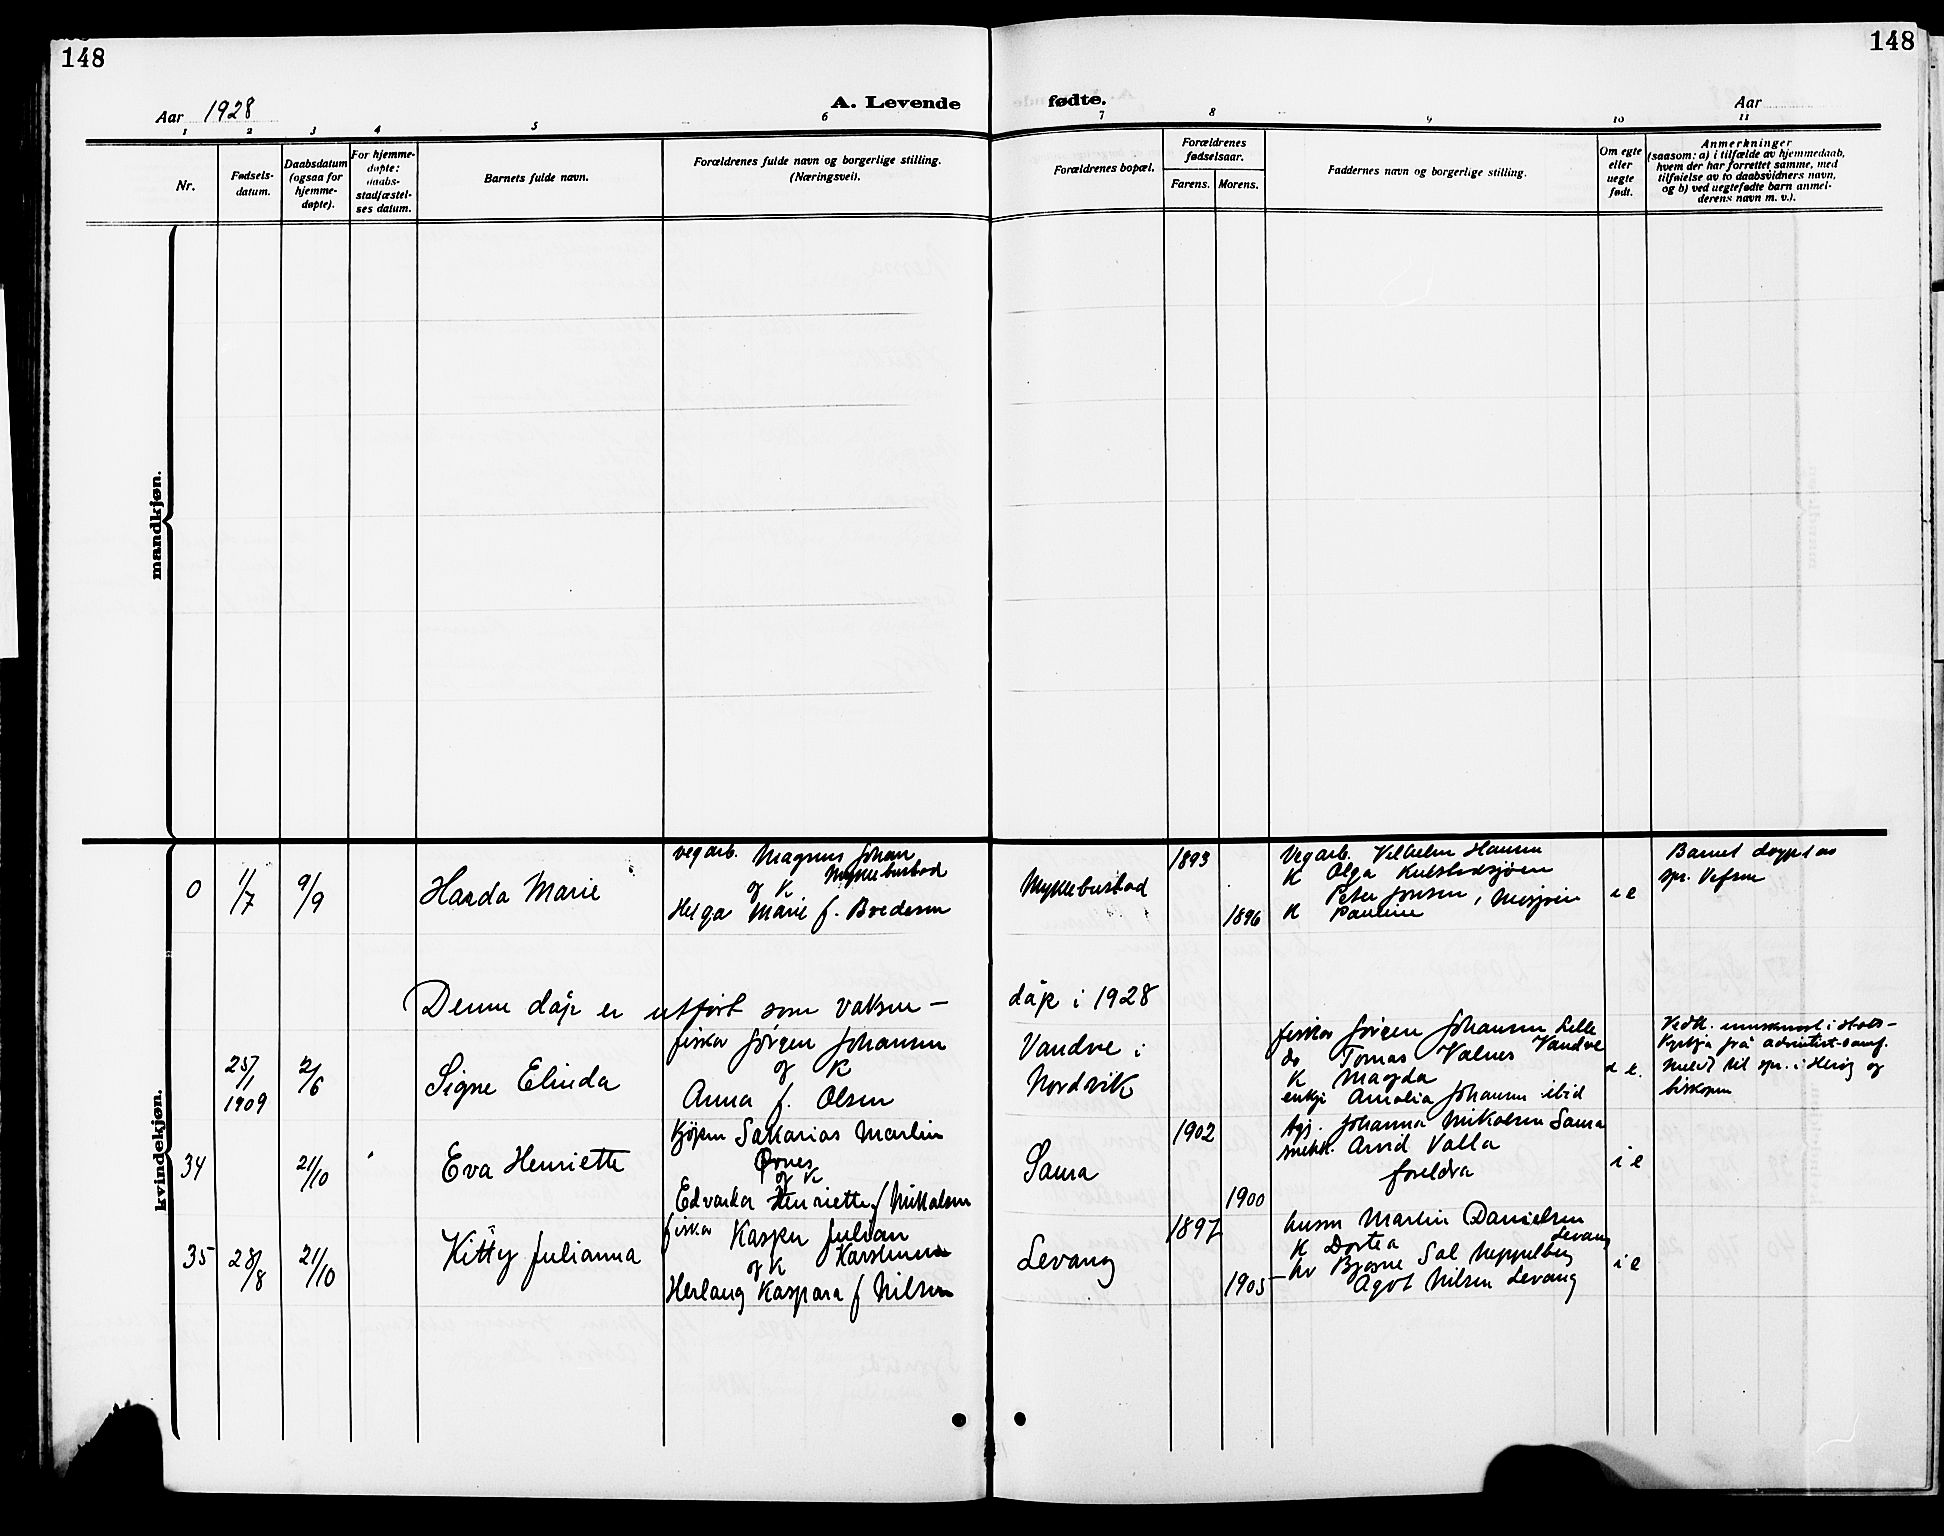 148
148
Aar 1928
A. Levende
fødte.
Aar
1 2 3 4 5 6 7 8 9 10 11
Nr.
Fødsels-
datum.
Daabsdatum
(ogsaa for
hjemme-
døpte).
For hjemme-
døpte:
daabs-
stadfæstel-
ses datum.
Barnets fulde navn.
Forældrenes fulde navn og borgerlige stilling.
(Næringsvei).
Forældrenes bopæl.
Forældrenes
fødselsaar.
Farens. Morens.
Faddernes navn og borgerlige stilling.
Om egte
eller
uegte
født.
Anmerkninger
(saasom: a) i tilfælde av hjemmedaab,
hvem der har forrettet samme, med
tilføielse av to daabsvidners navn,
og b) ved uegtefødte barn anmel-
derens navn m. v.).
mandkjøn.
kvindekjøn.
0
11/7
9/9
Harda Marie
vegarb. Magnus Johan
Myklebustad
og K
Helga Marie f. Bredesen
Myklebustad
1893
1896
Vegarb. Vilhelm Hansen
K Olga Kulstadsjøen
Peter Jonsen, Mosjøen
K Pauline
i e
Barnet døypt av
spr. Vefsn
Denne dåp er utført som vaksen -
dåp i 1928
25/1
1909
2/6
Signe Elinda
fisker Jörgen Johansen
og K
Anna f. Olsen
Vandve i
Nordvik
fisker Jörgen Johansen Lille
Vandve
do Tomas Valnes
K Magda
enkje Amalia Johansen ibid
e.
Vedk. innskrevet i stats-
kyrkja frå adventist-samf.
Meldt til spr. i Herøy og
biskopen
34
21/10
Eva Henriette
kjøpm Sakarias Martin
Ørnes
og K
Edvarda Henriette f Mikalsen
Saura
1902
1900
Johanna Mikalsen Saura
snekk. Arvid Valla
foreldra
i e
35
28/8
21/10
Kitty Julianna
fisker Kasper Julian
Karstensen
og K
Herlaug Kaspara f Nilsen
Levang
1897
1905
husm Martin Danielsen
Levang
K Dortea
Bjarne Sol. Meppelberg
Agot Nilsen Levang
i e